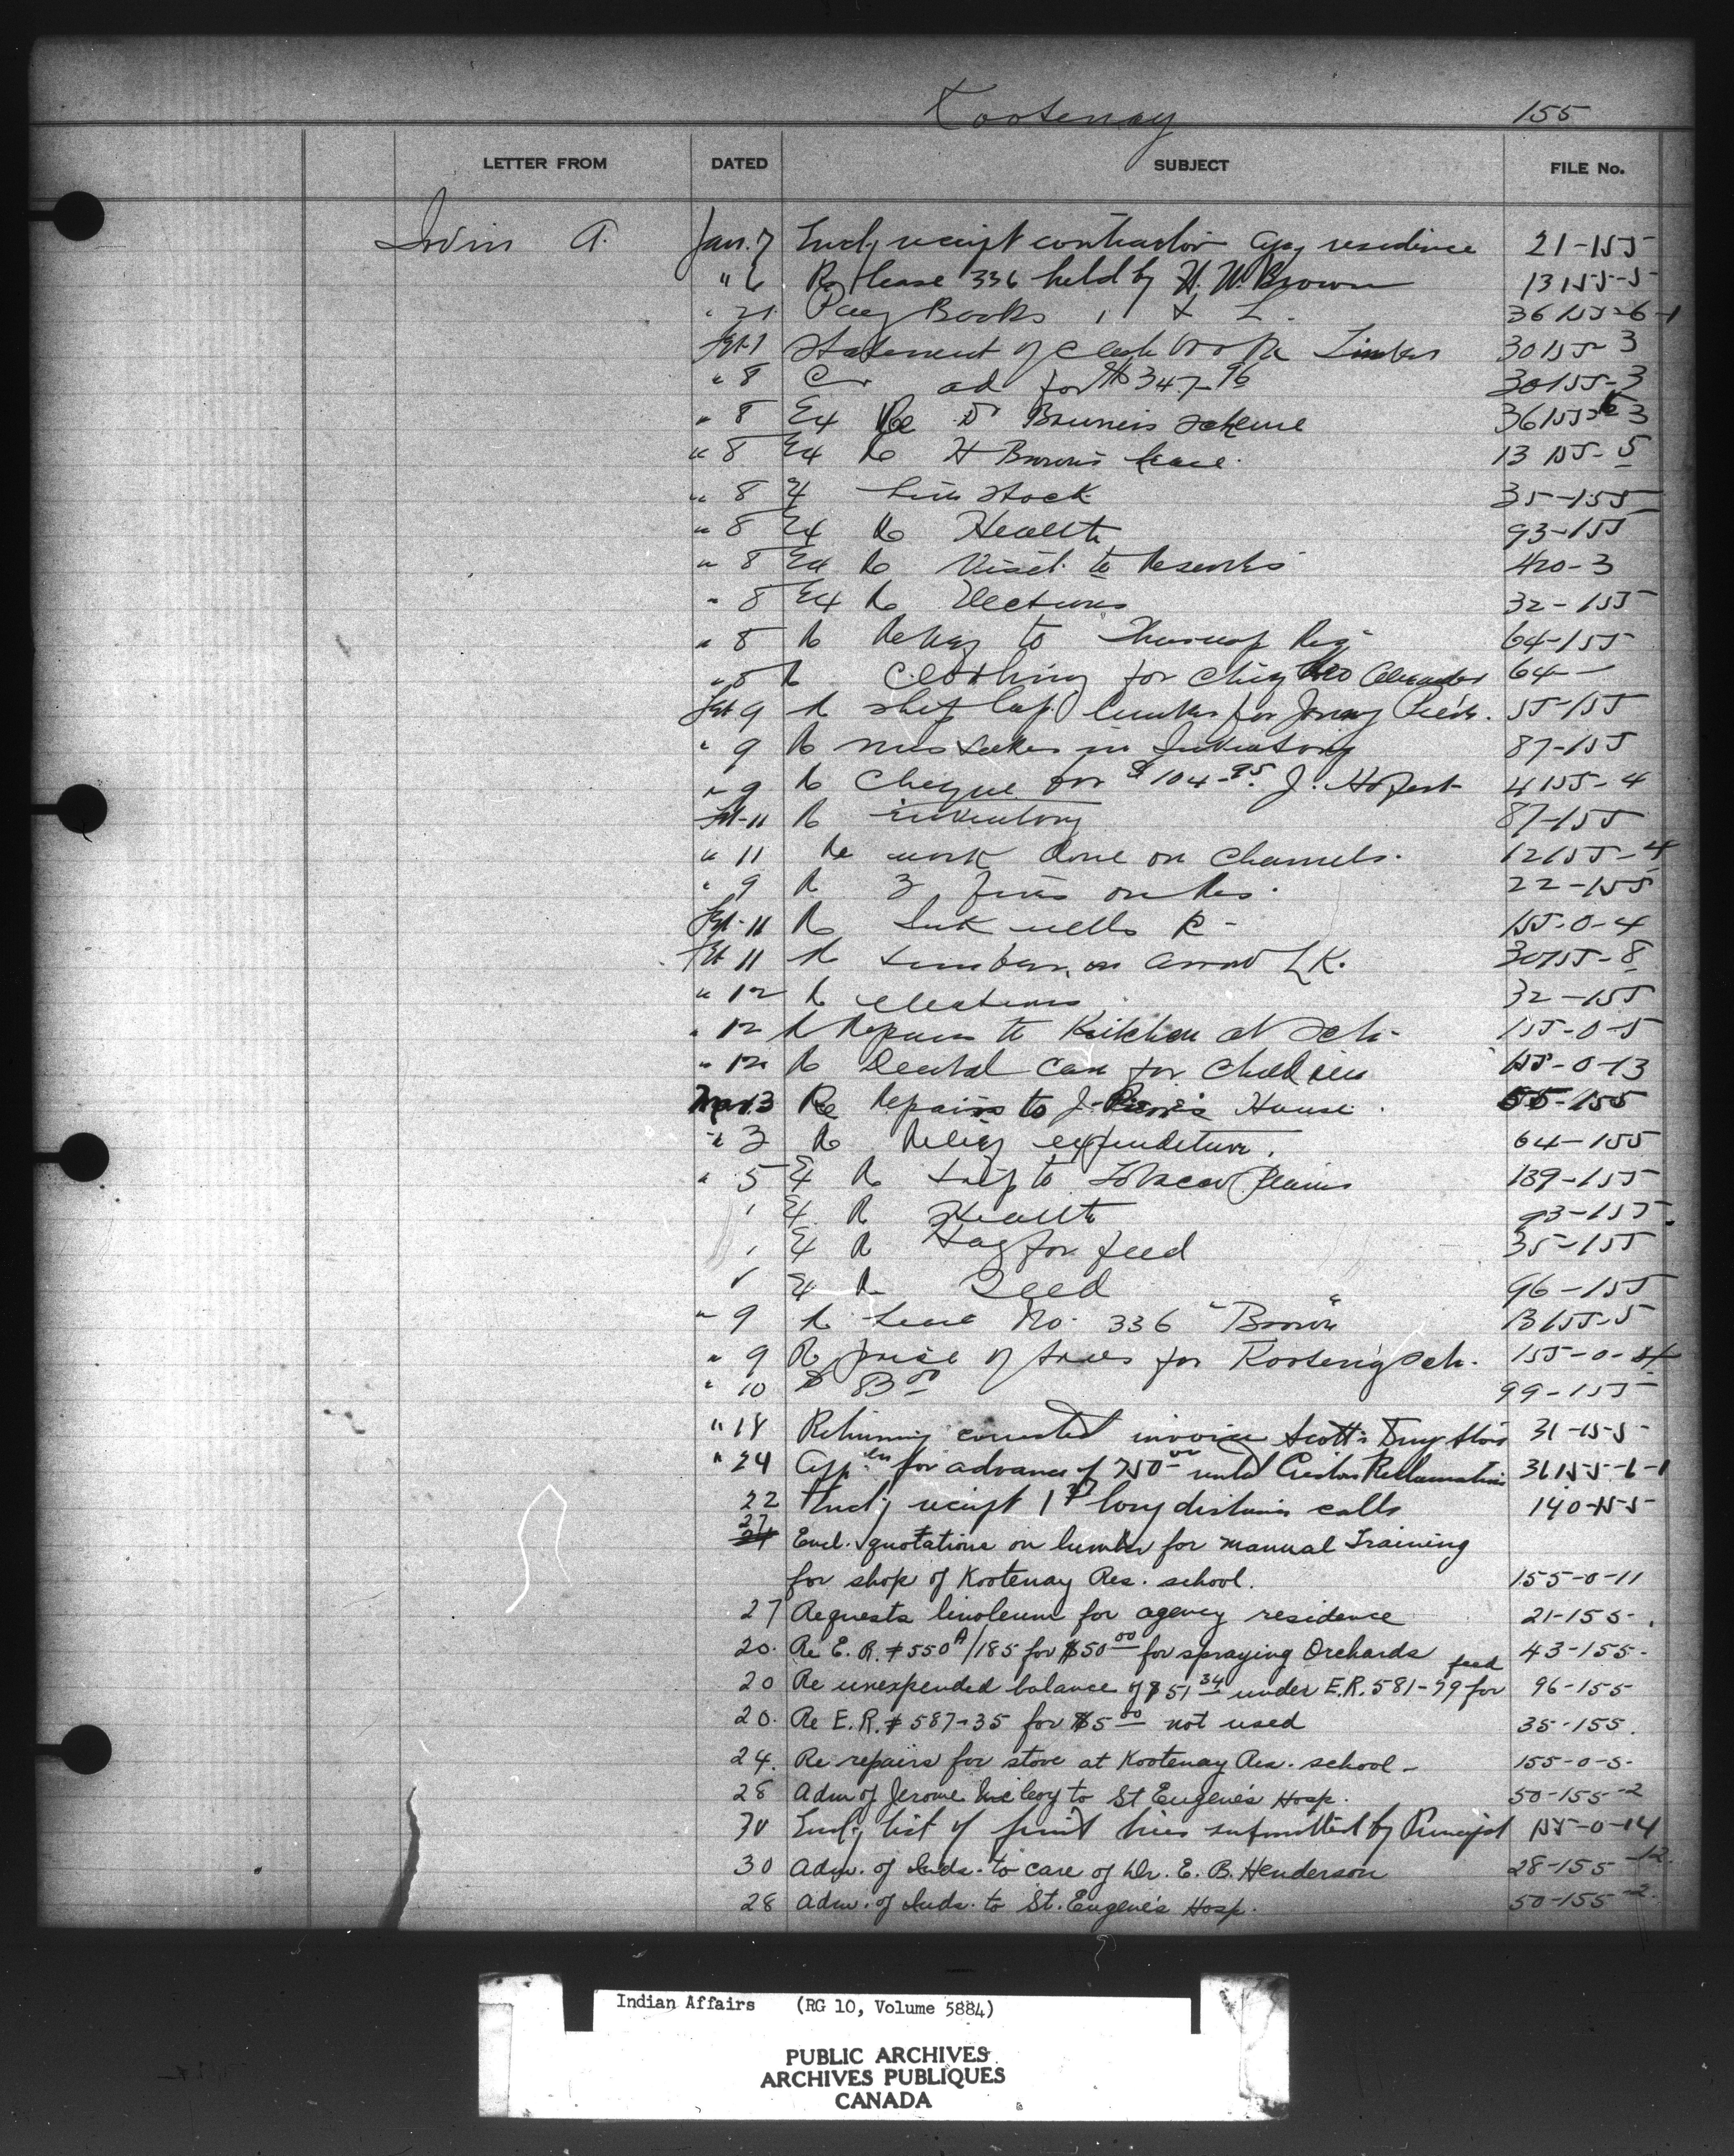 Kootenay 155
LETTER FROM DATED SUBJECT FILE No.
Irvin A. Jan. 7 Encl; receipt contractor Agcy residence 21-155
" 6 Re lease 336 held by H. W. Brown 13155-5
" 21 Pay Books 36155-6-1
Feb 7 Statement of Cash Book Timber 30155-3
" 8 ad for $347.96 30155-3
" 8 Ex Re scheme
" 8 Ex Re H Brown's lease. 13155-5
" 8 Ex Live Stock 35-155
" 8 Ex Re Health 93-155
" 8 Ex Re Visit to Reserves 420-3
" 8 Ex Re Elections 32-155
" 8 Re Relief to 64-155
" 8 Re Clothing for Chief 64-
Feb 9 Re ship lap lumber for 55-155
" 9 Re mistakes in Inventory 87-155
" 9 Re Cheque for $104.95 J. 4155-4
Feb-11 Re inventory 87-155
" 11 Re work done on Channels. 12155-4
" 9 Re 3 on Res. 22-155
Feb-11 Re Ink wells 155-0-4
Feb 11 Re timber on Arrow LK. 30155-8
" 12 Re elections 32-155
" 12 Re Repairs to Kitchen at Sch- 155-0-5
" 12 Re Dental Care for Children 155-0-13
Mar. 3 Re Repairs to J. House. 55-155
" 3 Re Relief expenditure. 64-155
" 5 Ex Re trip to Tobacco Plains 139-155
Ex Re Health 93-155
Ex Re Hay for feed 35-155
Ex Re Seed 96-155
" 9 Re Lease No. 336 "Brown" 13155-5
" 9 Re price of trees for Kootenay Sch. 155-0-14
" 10 99-155
" 18 Returning corrected invoice Scott's Drug Store 31-155
" 24 App'cn for advance of 750.00 until Creston Reclamation 36155-6-1
22 Encl; receipt long distance calls 140-155
27 Encl. quotations on lumber for manual Training
for shop of Kootenay Res. school. 155-0-11
27 Requests linoleum for agency residence 21-155.
20. Re E.R. #550A/185 for $50.00 for spraying Orchards 43-155.
20 Re unexpended balance of $51.34 under E.R. 581-79 for feed 96-155
20. Re E.R. #587-35 for $5.00 not used 35-155.
24. Re repairs for stove at Kootenay Res. school. 155-0-5.
28 Adm of Jerome to St Eugene's Hosp. 50-155-2
30 Encl; list of fruit trees submitted by Principal 155-0-14
30 Adm. of Inds. to care of Dr. E. B. Henderson 28-155-12.
28 Adm. of Inds. to St. Eugene's Hosp. 50-155-2.
Indian Affairs (RG 10, Volume 5884)
PUBLIC ARCHIVES
ARCHIVES PUBLIQUES
CANADA